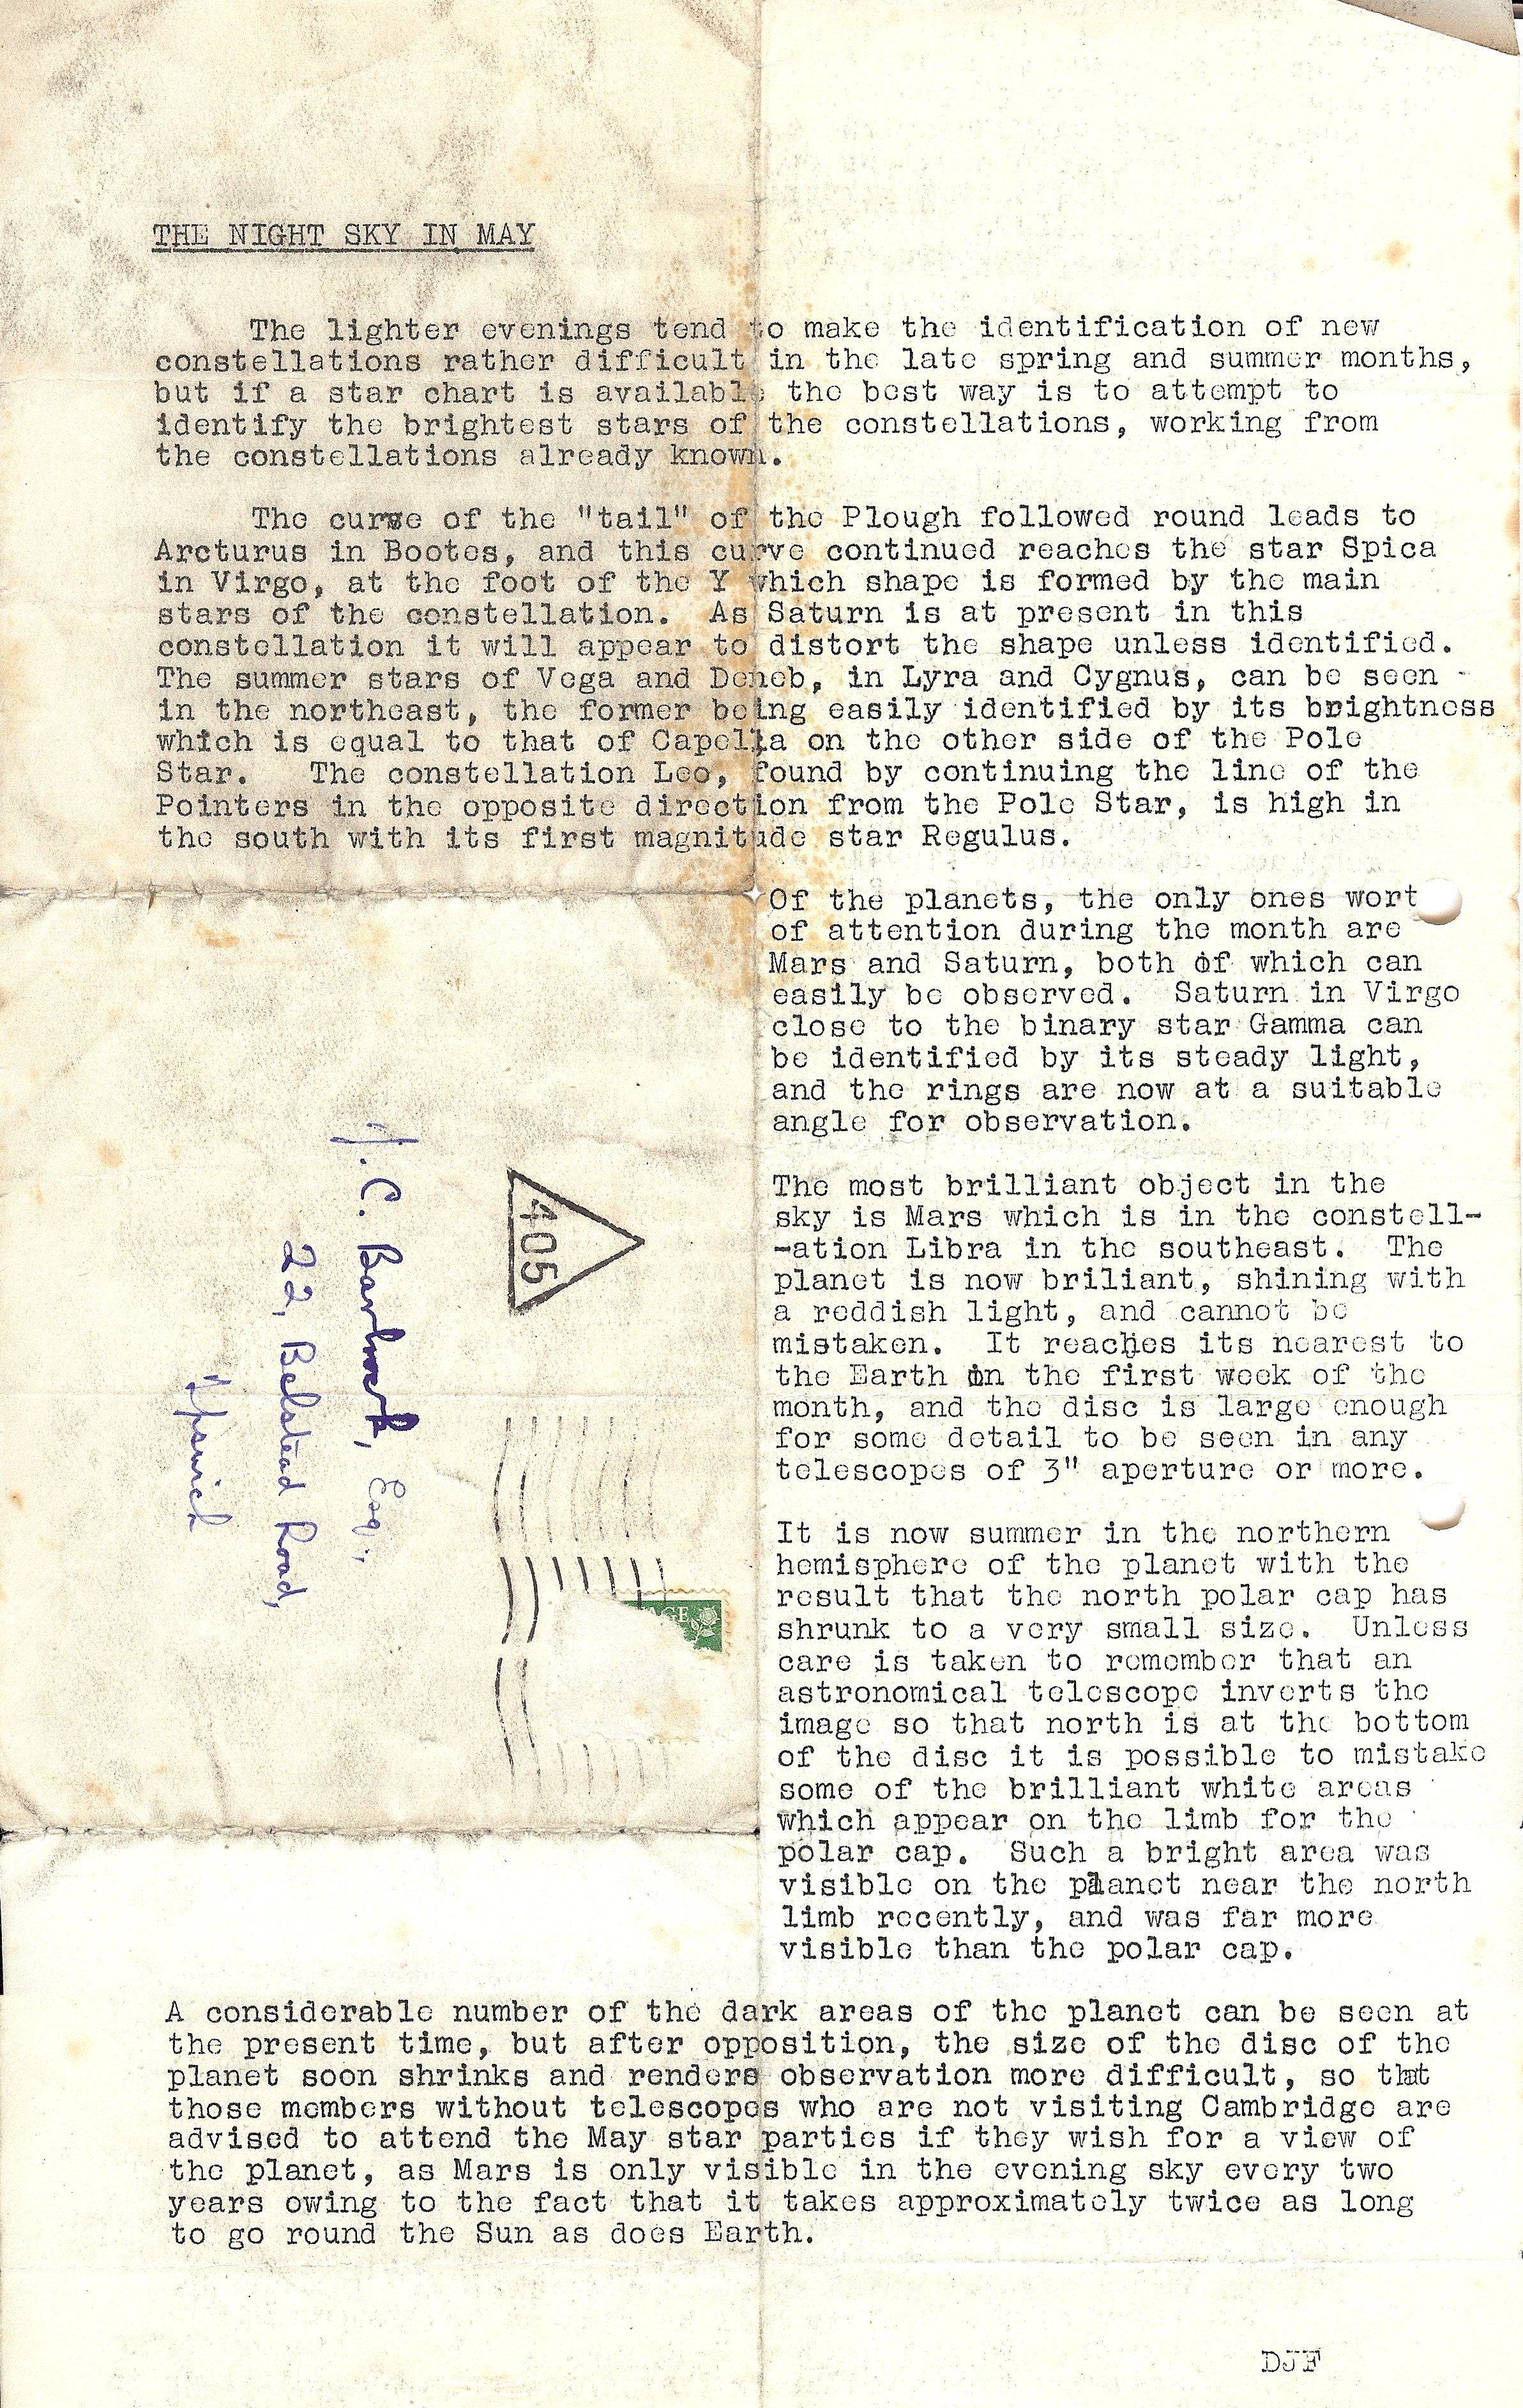 THE NIGHT SKY IN MAY
The lighter evenings tend to make the identification of new
constellations rather difficult in the late spring and summer months,
but if a star chart is available the best way is to attempt to
identify the brightest stars of the constellations, working from
the constellations already known.
The curve of the "tail" of the Plough followed round leads to
Arcturus in Bootes, and this curve continued reaches the star Spica
in Virgo, at the foot of the Y which shape is formed by the main
stars of the constellation. As Saturn is at present in this
constellation it will appear to distort the shape unless identified.
The summer stars of Vega and Deneb, in Lyra and Cygnus, can be seen
in the northeast, the former being easily identified by its brightness
which is equal to that of Capella on the other side of the Pole
Star. The constellation Leo, found by continuing the line of the
Pointers in the opposite direction from the Pole Star, is high in
the south with its first magnitude star Regulus.
Of the planets, the only ones wort
of attention during the month are
Mars and Saturn, both of which can
easily be observed. Saturn in Virgo
close to the binary star Gamma can
be identified by its steady light,
and the rings are now at a suitable
angle for observation.
The most brilliant object in the
sky is Mars which is in the constell-
-ation Libra in the southeast. The
planet is now briliant, shining with
a reddish light, and cannot be
mistaken. It reaches its nearest to
the Earth in the first week of the
month, and the disc is large enough
for some detail to be seen in any
telescopes of 3" aperture or more.
It is now summer in the northern
hemisphere of the planet with the
result that the north polar cap has
shrunk to a very small size. Unless
care is taken to remember that an
astronomical telescope inverts the
image so that north is at the bottom
of the disc it is possible to mistake
some of the brilliant white areas
which appear on the limb for the
polar cap. Such a bright area was
visible on the planet near the north
limb recently, and was far more
visible than the polar cap.
A considerable number of the dark areas of the planet can be seen at
the present time, but after opposition, the size of the disc of the
planet soon shrinks and renders observation more difficult, so that
those members without telescopes who are not visiting Cambridge are
advised to attend the May star parties if they wish for a view of
the planet, as Mars is only visible in the evening sky every two
years owing to the fact that it takes approximately twice as long
to go round the Sun as does Earth.
DJF
405
C. Esq.,
22, Belstead Road,
Ipswich
AGE